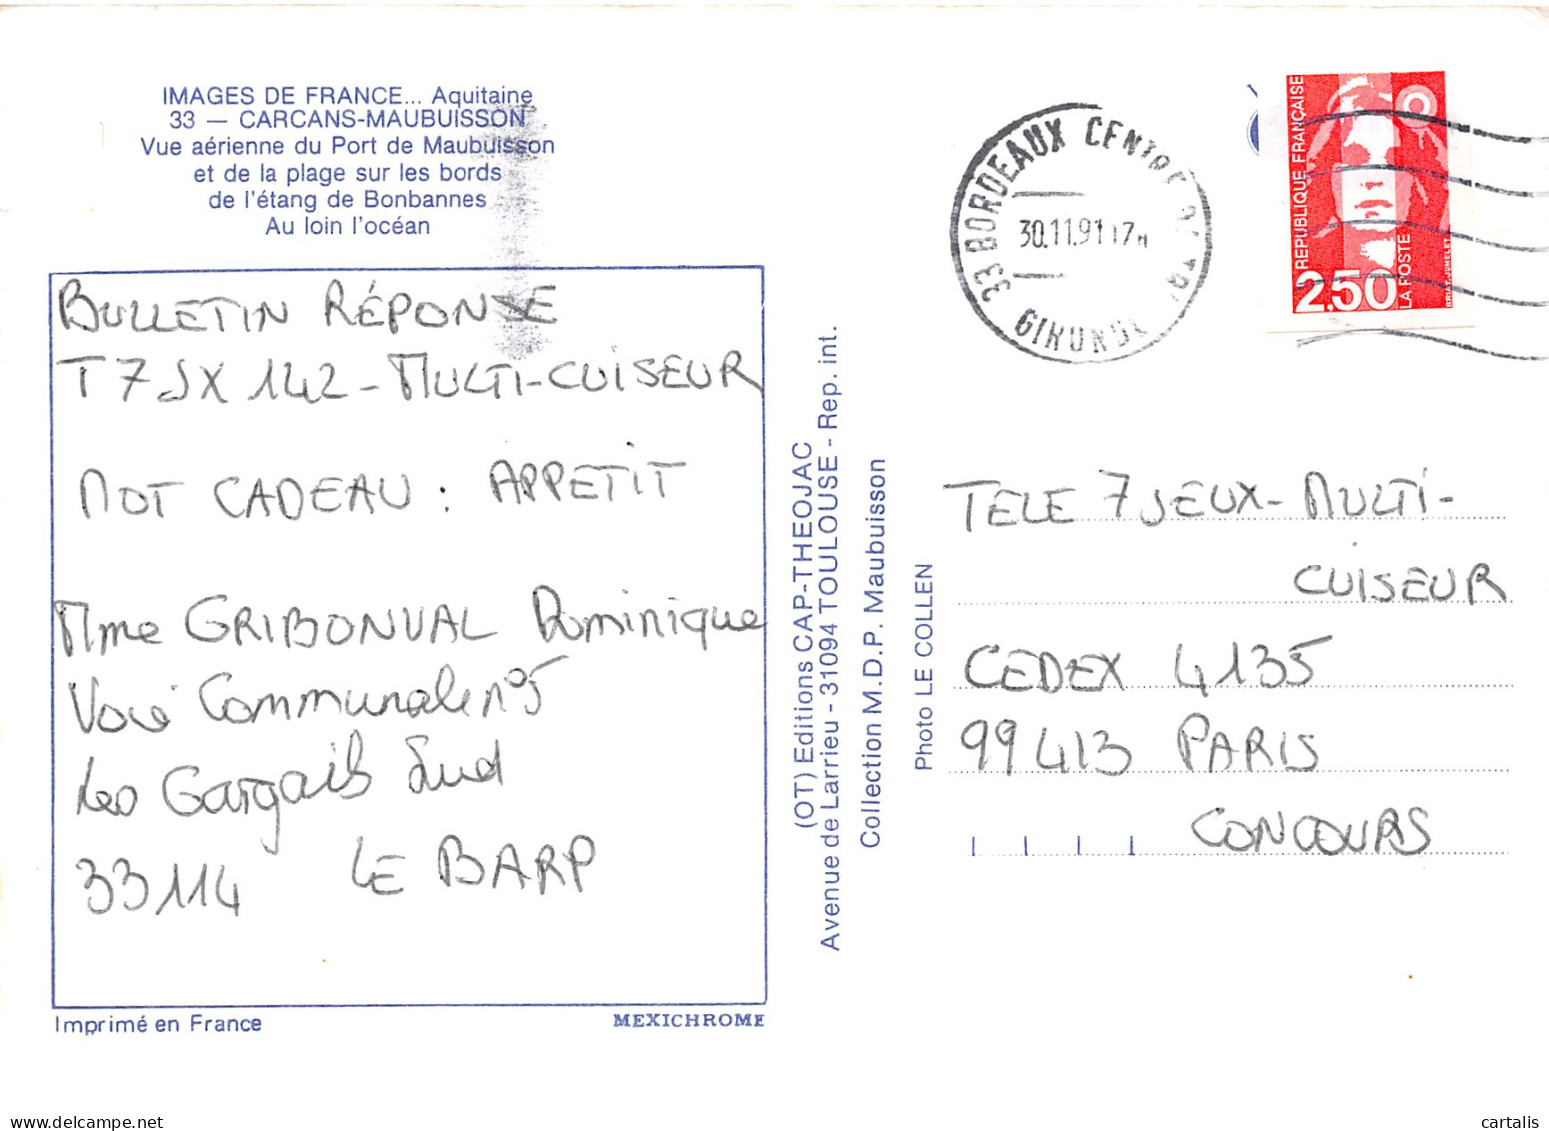 IMAGES DE FRANCE... Aquitaine
33 — CARCANS-MAUBUISSON
Vue aérienne du Port de Maubuisson
et de la plage sur les bords
de l'étang de Bonbannes
Au loin l'océan
BULLETIN RÉPONSE
T7JX 142 - MULTI-CUISEUR
MOT CADEAU : APPETIT
Mme GRIBONVAL Dominique
Voie Communale n°5
Les Gargails Sud
33114 LE BARP
Imprimé en France
MEXICHROME
(OT) Editions CAP-THEOJAC
Avenue de Larrieu - 31094 TOULOUSE - Rep. int.
Collection M.D.P. Maubuisson
Photo LE COLLEN
33 BORDEAUX CENTRE
30.11.91 17H
GIRONDE
REPUBLIQUE FRANÇAISE
2,50
LA POSTE
BRIAT-JUMELET
TELE 7 JEUX - MULTI-
CUISEUR
CEDEX 4135
99413 PARIS
CONCOURS
cartalis